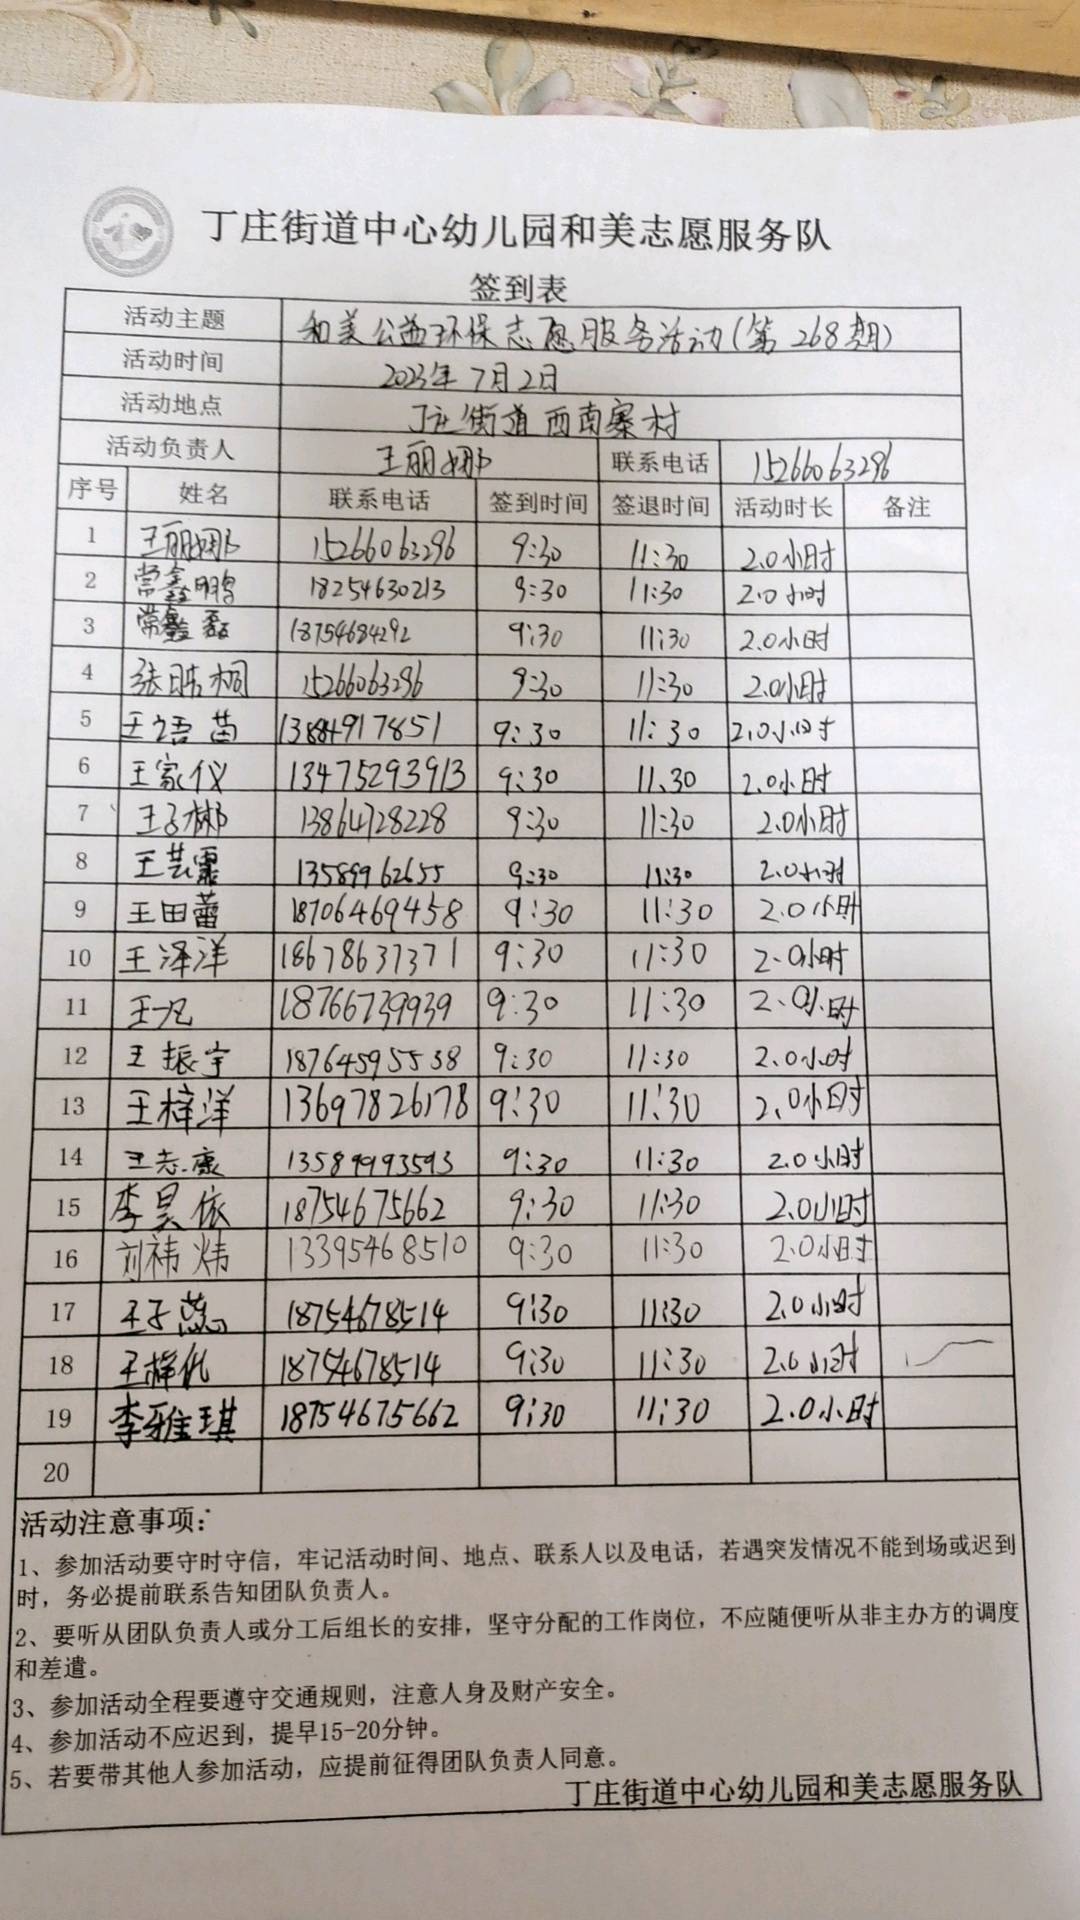 丁庄街道中心幼儿园和美志愿服务队
签到表
活动主题 和美公益环保志愿服务活动(第268期)
活动时间 2023年7月2日
活动地点 丁庄街道西南寨村
活动负责人 王丽娜 联系电话 15266063296
序号 姓名 联系电话 签到时间 签退时间 活动时长 备注
1 王丽娜 15266063296 9:30 11:30 2.0小时
2 常鑫鹏 18254630213 9:30 11:30 2.0小时
3 常鑫磊 18754684292 9:30 11:30 2.0小时
4 张皓桐 15266063296 9:30 11:30 2.0小时
5 王语苗 13884917851 9:30 11:30 2.0小时
6 王家仪 13475293913 9:30 11:30 2.0小时
7 王子彬 13864728228 9:30 11:30 2.0小时
8 王芸霏 13589962655 9:30 11:30 2.0小时
9 王田蕾 18706469458 9:30 11:30 2.0小时
10 王泽洋 18678637371 9:30 11:30 2.0小时
11 王一凡 18766739939 9:30 11:30 2.0小时
12 王振宇 18764595538 9:30 11:30 2.0小时
13 王梓洋 13697826178 9:30 11:30 2.0小时
14 王志康 13589993593 9:30 11:30 2.0小时
15 李昊依 18754675662 9:30 11:30 2.0小时
16 刘祎炜 13395468510 9:30 11:30 2.0小时
17 王子蕊 18754678514 9:30 11:30 2.0小时
18 王梓仉 18754678514 9:30 11:30 2.0小时
19 李雅琪 18754675662 9:30 11:30 2.0小时
20
活动注意事项:
1、参加活动要守时守信，牢记活动时间、地点、联系人以及电话，若遇突发情况不能到场或迟到
时，务必提前联系告知团队负责人。
2、要听从团队负责人或分工后组长的安排，坚守分配的工作岗位，不应随便听从非主办方的调度
和差遣。
3、参加活动全程要遵守交通规则，注意人身及财产安全。
4、参加活动不应迟到，提早15-20分钟。
5、若要带其他人参加活动，应提前征得团队负责人同意。
丁庄街道中心幼儿园和美志愿服务队